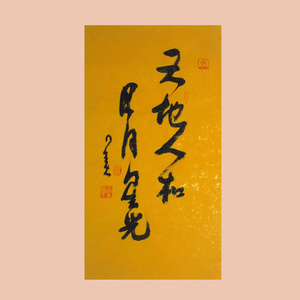 天地人和
日月星光